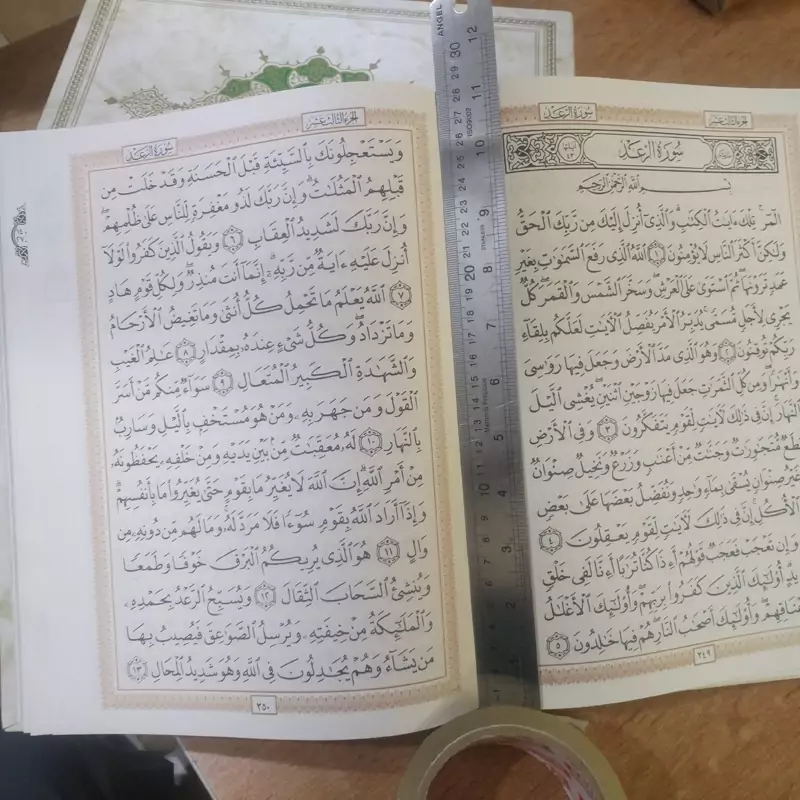 سُورَةُ الرَّعْدِ
الجزء الثالث عشر
سُورَةُ الرَّعْدِ
آياتها ٤٣
بِسْمِ اللَّهِ الرَّحْمَٰنِ الرَّحِيمِ
الٓمٓر ۚ تِلْكَ ءَايَٰتُ الْكِتَٰبِ ۗ وَالَّذِىٓ أُنزِلَ إِلَيْكَ مِن رَّبِّكَ الْحَقُّ
وَلَٰكِنَّ أَكْثَرَ النَّاسِ لَا يُؤْمِنُونَ ١ اللَّهُ الَّذِى رَفَعَ السَّمَٰوَٰتِ بِغَيْرِ
عَمَدٍ تَرَوْنَهَا ۖ ثُمَّ اسْتَوَىٰ عَلَى الْعَرْشِ ۖ وَسَخَّرَ الشَّمْسَ وَالْقَمَرَ ۖ كُلٌّ
يَجْرِى لِأَجَلٍ مُّسَمًّى ۚ يُدَبِّرُ الْأَمْرَ يُفَصِّلُ الْءَايَٰتِ لَعَلَّكُم بِلِقَآءِ
رَبِّكُمْ تُوقِنُونَ ٢ وَهُوَ الَّذِى مَدَّ الْأَرْضَ وَجَعَلَ فِيهَا رَوَٰسِىَ
وَأَنْهَٰرًا ۖ وَمِن كُلِّ الثَّمَرَٰتِ جَعَلَ فِيهَا زَوْجَيْنِ اثْنَيْنِ ۖ يُغْشِى الَّيْلَ
النَّهَارَ ۚ إِنَّ فِى ذَٰلِكَ لَءَايَٰتٍ لِّقَوْمٍ يَتَفَكَّرُونَ ٣ وَفِى الْأَرْضِ
قِطَعٌ مُّتَجَٰوِرَٰتٌ وَجَنَّٰتٌ مِّنْ أَعْنَٰبٍ وَزَرْعٌ وَنَخِيلٌ صِنْوَانٌ
وَغَيْرُ صِنْوَانٍ يُسْقَىٰ بِمَآءٍ وَٰحِدٍ وَنُفَضِّلُ بَعْضَهَا عَلَىٰ بَعْضٍ
فِى الْأُكُلِ ۚ إِنَّ فِى ذَٰلِكَ لَءَايَٰتٍ لِّقَوْمٍ يَعْقِلُونَ ٤
وَإِن تَعْجَبْ فَعَجَبٌ قَوْلُهُمْ أَءِذَا كُنَّا تُرَٰبًا أَءِنَّا لَفِى خَلْقٍ
جَدِيدٍ ۗ أُو۟لَٰٓئِكَ الَّذِينَ كَفَرُوا۟ بِرَبِّهِمْ ۖ وَأُو۟لَٰٓئِكَ الْأَغْلَٰلُ
أَعْنَاقِهِمْ ۖ وَأُو۟لَٰٓئِكَ أَصْحَٰبُ النَّارِ ۖ هُمْ فِيهَا خَٰلِدُونَ ٥
٢٤٩
الجزء الثالث عشر
سُورَةُ الرَّعْدِ
وَيَسْتَعْجِلُونَكَ بِالسَّيِّئَةِ قَبْلَ الْحَسَنَةِ وَقَدْ خَلَتْ مِن
قَبْلِهِمُ الْمَثُلَٰتُ ۗ وَإِنَّ رَبَّكَ لَذُو مَغْفِرَةٍ لِّلنَّاسِ عَلَىٰ ظُلْمِهِمْ ۖ
وَإِنَّ رَبَّكَ لَشَدِيدُ الْعِقَابِ ٦ وَيَقُولُ الَّذِينَ كَفَرُوا۟ لَوْلَآ
أُنزِلَ عَلَيْهِ ءَايَةٌ مِّن رَّبِّهِۦٓ ۗ إِنَّمَآ أَنتَ مُنذِرٌ ۖ وَلِكُلِّ قَوْمٍ هَادٍ
٧ اللَّهُ يَعْلَمُ مَا تَحْمِلُ كُلُّ أُنثَىٰ وَمَا تَغِيضُ الْأَرْحَامُ
وَمَا تَزْدَادُ ۖ وَكُلُّ شَىْءٍ عِندَهُۥ بِمِقْدَارٍ ٨ عَٰلِمُ الْغَيْبِ
وَالشَّهَٰدَةِ الْكَبِيرُ الْمُتَعَالِ ٩ سَوَآءٌ مِّنكُم مَّنْ أَسَرَّ
الْقَوْلَ وَمَن جَهَرَ بِهِۦ وَمَنْ هُوَ مُسْتَخْفٍۭ بِالَّيْلِ وَسَارِبٌۢ
بِالنَّهَارِ ١٠ لَهُۥ مُعَقِّبَٰتٌ مِّنۢ بَيْنِ يَدَيْهِ وَمِنْ خَلْفِهِۦ يَحْفَظُونَهُۥ
مِنْ أَمْرِ اللَّهِ ۗ إِنَّ اللَّهَ لَا يُغَيِّرُ مَا بِقَوْمٍ حَتَّىٰ يُغَيِّرُوا۟ مَا بِأَنفُسِهِمْ ۗ
وَإِذَآ أَرَادَ اللَّهُ بِقَوْمٍ سُوٓءًا فَلَا مَرَدَّ لَهُۥ ۚ وَمَا لَهُم مِّن دُونِهِۦ مِن
وَالٍ ١١ هُوَ الَّذِى يُرِيكُمُ الْبَرْقَ خَوْفًا وَطَمَعًا
وَيُنشِئُ السَّحَابَ الثِّقَالَ ١٢ وَيُسَبِّحُ الرَّعْدُ بِحَمْدِهِۦ
وَالْمَلَٰٓئِكَةُ مِنْ خِيفَتِهِۦ وَيُرْسِلُ الصَّوَٰعِقَ فَيُصِيبُ بِهَا
مَن يَشَآءُ وَهُمْ يُجَٰدِلُونَ فِى اللَّهِ وَهُوَ شَدِيدُ الْمِحَالِ ١٣
٢٥٠
ANGEL
30 29 28 27 26 25 24 23 22 21 20 19 18 17 16 15 14 13 12 11 10 9 8 7 6 5 4 3 2 1
12 11 10 9 8 7 6 5 4 3 2 1